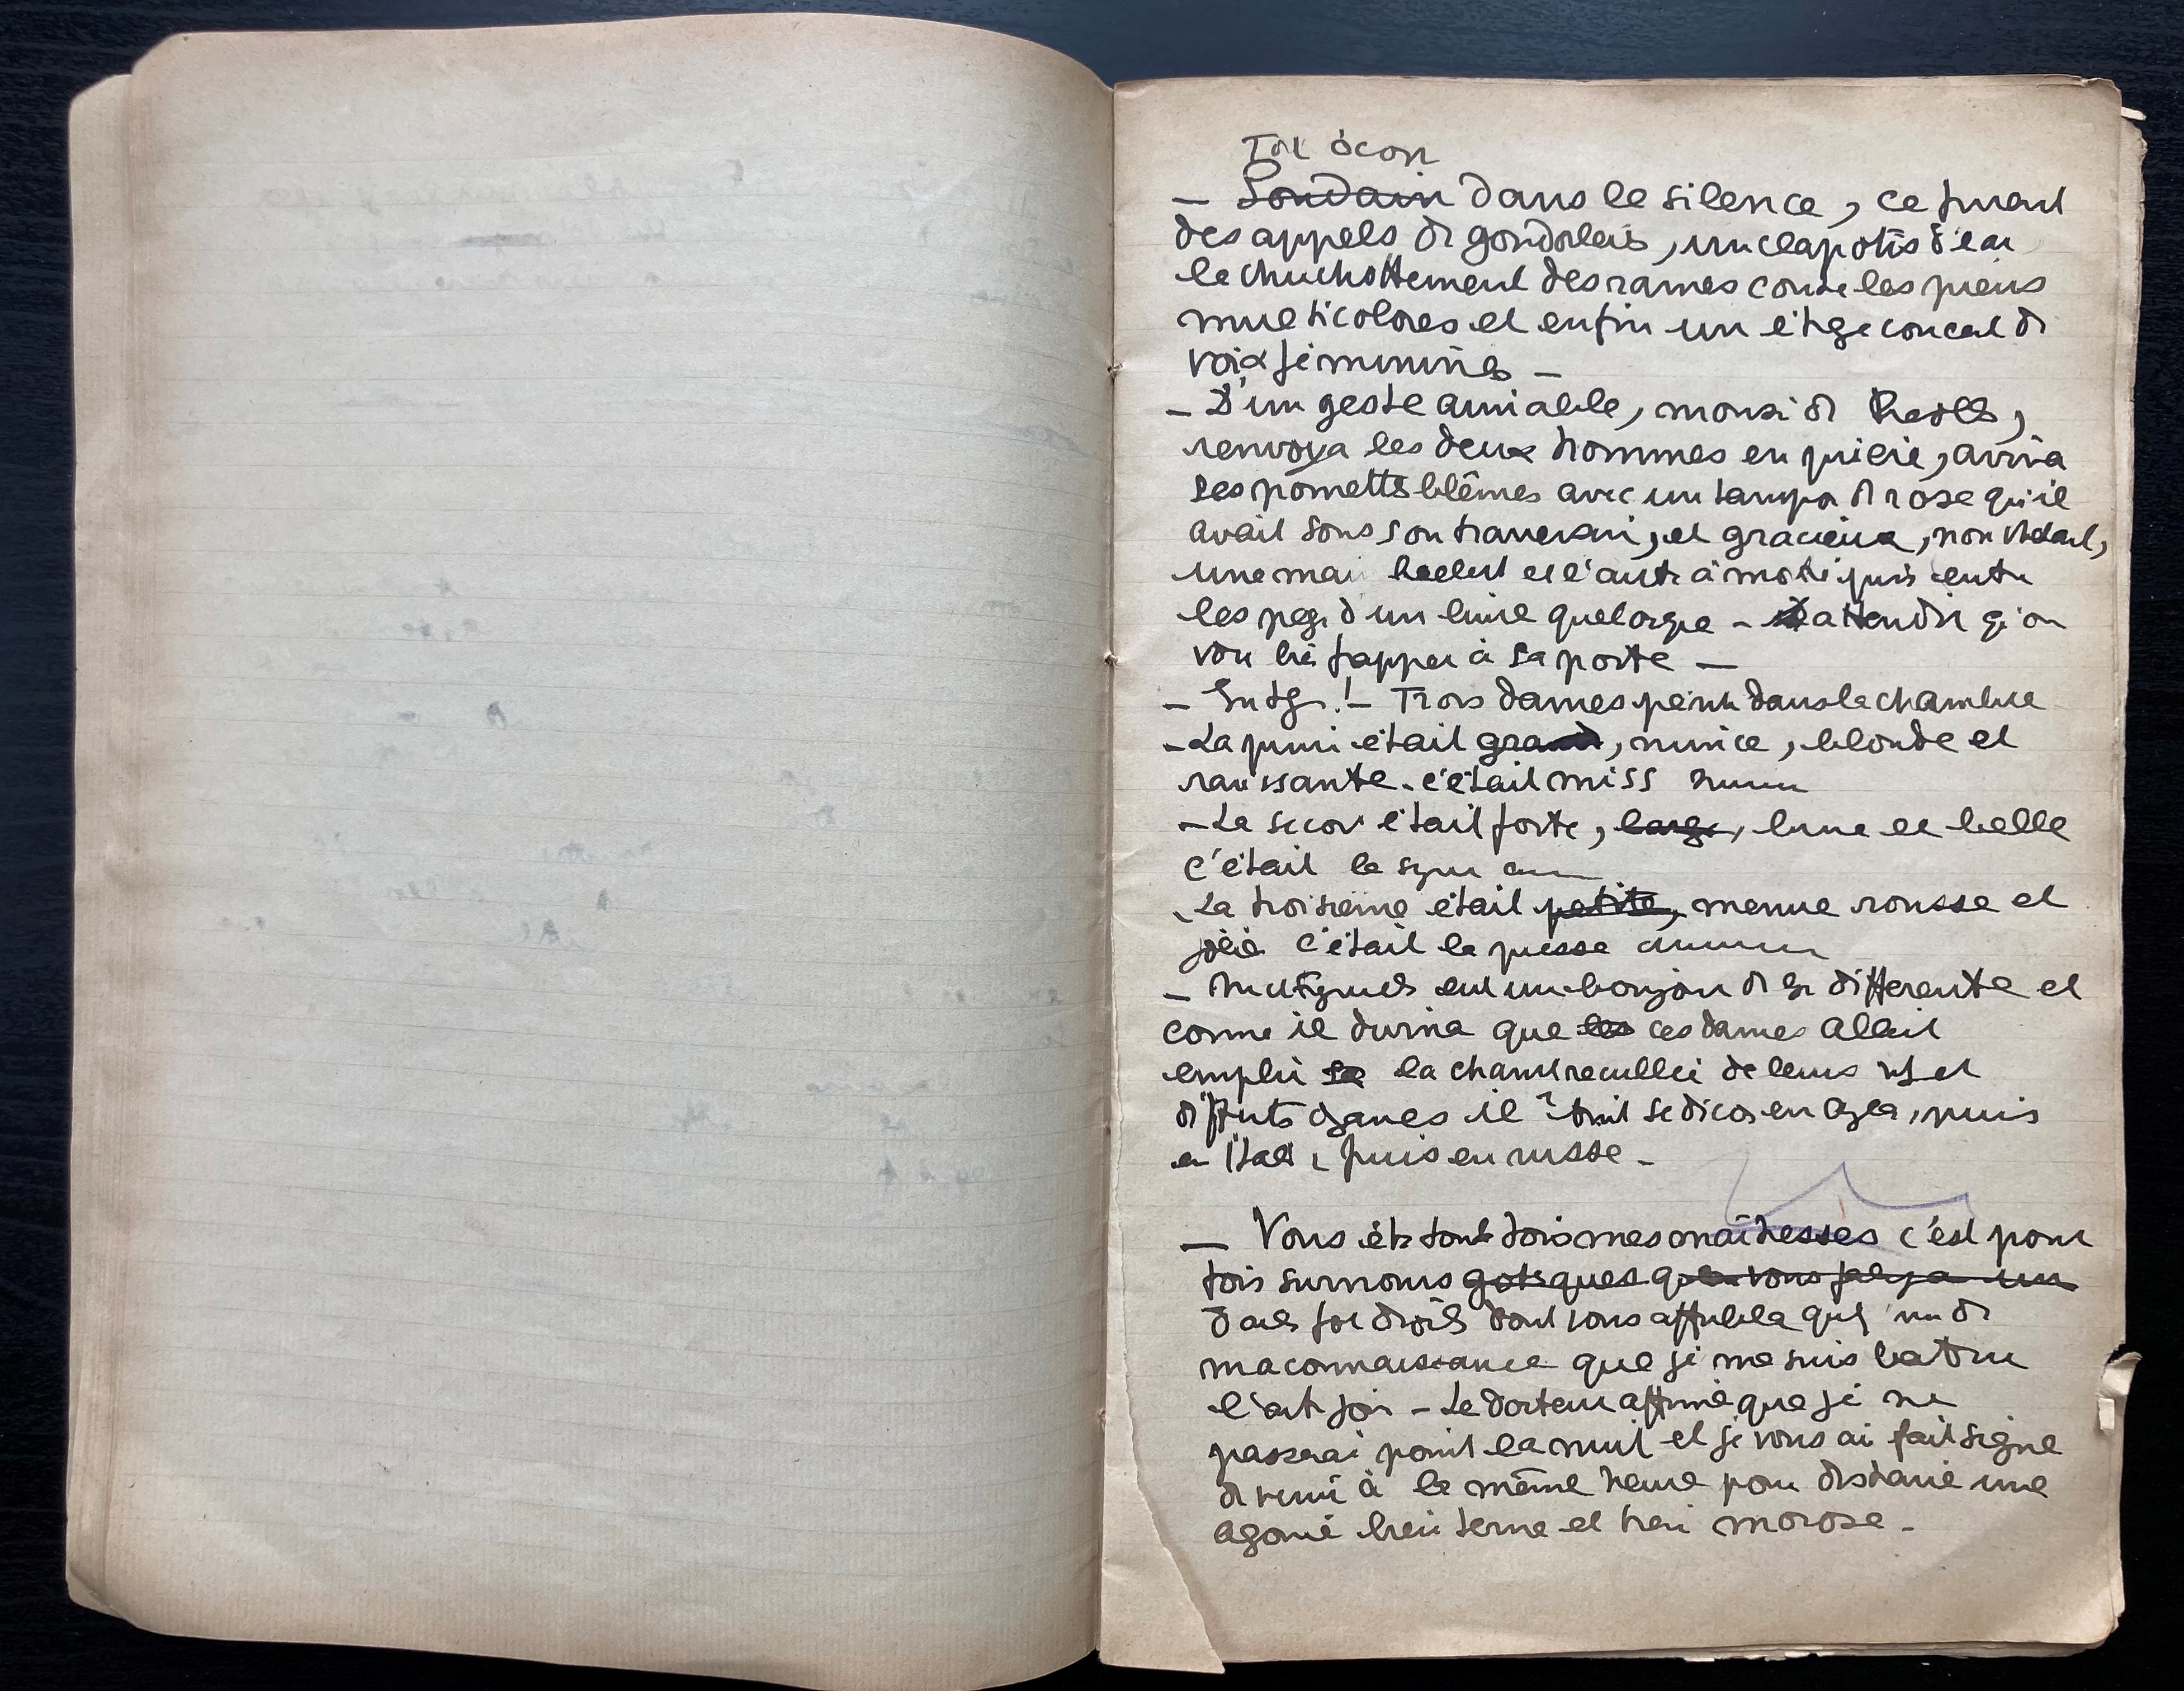 Tout à coup
— Soudain dans le silence, ce furent
des appels de gondoliers, un clapotis d'eau
le chuchottement des rames contre les pieux
multicolores et enfin un concert de
voix féminines —
— D'un geste aimable, monsi de
renvoya les deux hommes en prière, aviva
ses pomettes blêmes avec un tampon de rose qu'il
avait sous son traversin, et gracieux, nonchalant,
une main et l'autre à moitié prise entre
les pages d'un livre quelconque — attendit qu'on
vou frapper à sa porte —
— Entrez! — Trois dames dans la chambre
— La premi était grande, mince, blonde et
ravissante. c'était miss
— La secon était forte, large, brune et belle
c'était la
La troisième était petite, menue rousse et
jolie c'était la
— eut un bonjour de si differente et
comme il devina que les ces dames allait
emplir sa la chambre de leurs et
il se en puis
en puis en russe —
— Vous êtes toutes trois mes maîtresses c'est pour
trois surnoms grotesques que vous un
drôles dont vous affubla un de
ma connaissance que je me suis battu
l'autre jour — Le docteur affirme que je ne
passerai point la nuit et je vous ai fait signe
de venir à la même heure pour distraire une
agonie bien terne et bien morose —